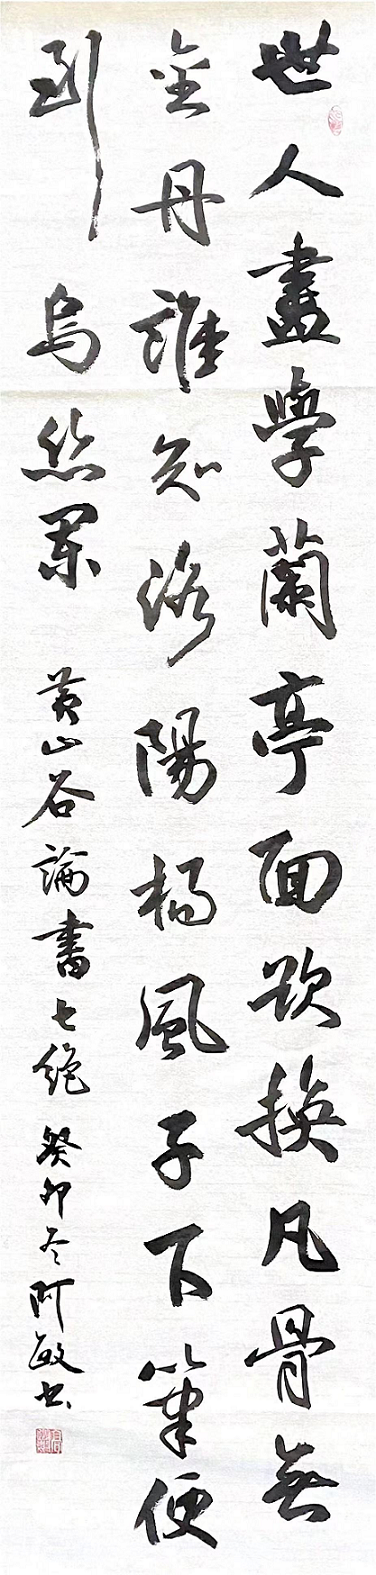 世人盡學蘭亭面欲換凡骨無
金丹誰知洛陽楊風子下筆便
到烏絲闌 黃山谷論書七絕 癸卯冬阿敏书